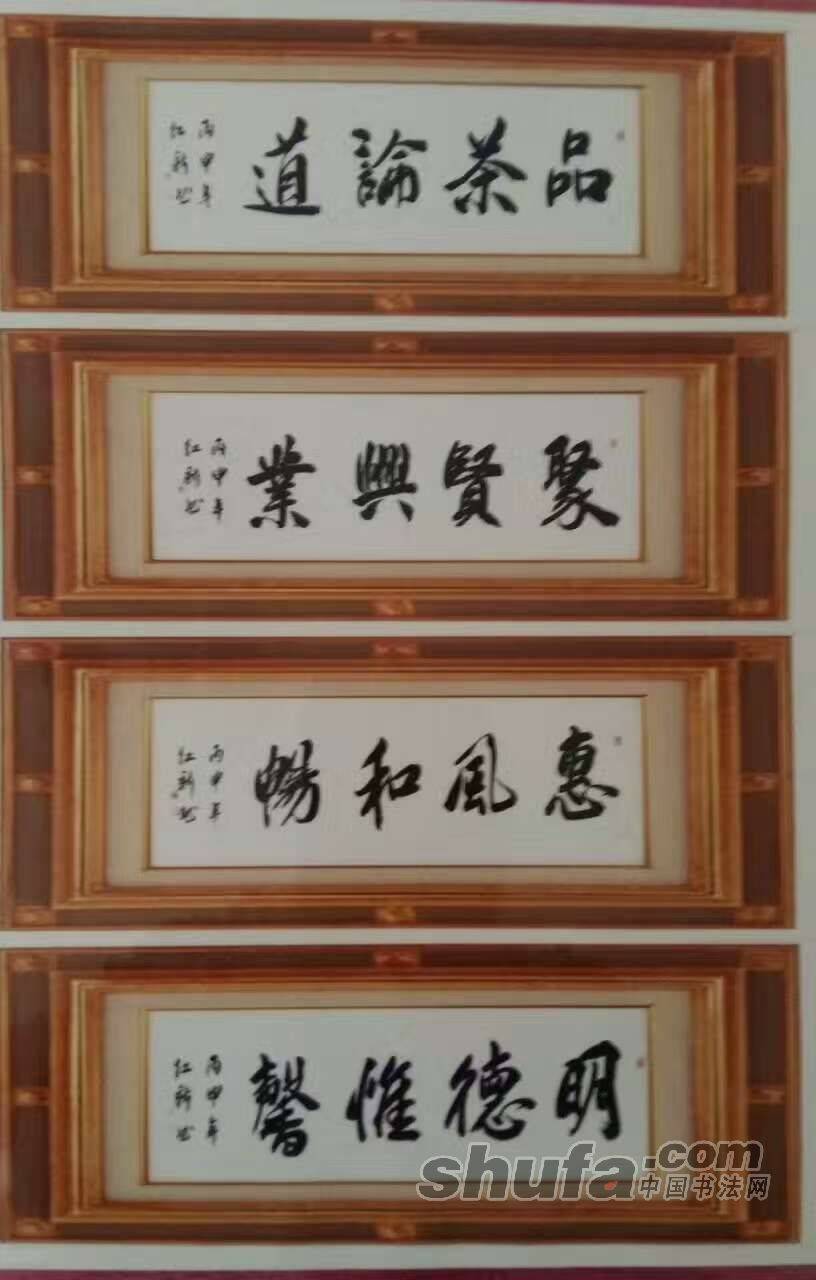 品茶論道
丙申年
红新书
聚賢興業
丙申年
红新书
惠風和暢
丙申年
红新书
明德惟馨
丙申年
红新书
shufa.com
中国书法网